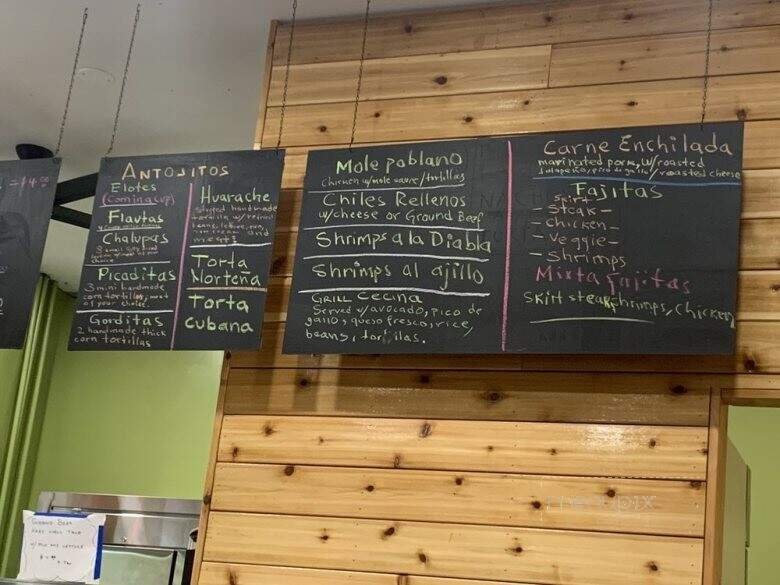 = 14.00
ANTOJITOS
Elotes
(Coming up)
Flautas
Chalupas
Choice
Picaditas
3 mini handmade
corn tortillas, meat
of your choice.
Gorditas
2 handmade thick
corn tortillas
Huarache
handmade
tortilla w/ refried
beans, lettuce, pico,
sour cream and
meats
Torta
Norteña
Torta
cubana
Mole poblano
Chicken w/mole sauce/tortillas
Chiles Rellenos
w/cheese or Ground Beef
Shrimps a la Diabla
Shrimps al ajillo
GRILL Cecina
Served w/avocado, pico de
gallo, queso fresco, rice,
beans, tortillas.
Carne Enchilada
marinated pork, w/roasted
Jalapeño, pico de gallo, w/roasted cheese
Fajitas
- skirt
steak -
- chicken -
- veggie -
- shrimps
Mixta fajitas
skirt steak, shrimps, chicken
Ground Beef
Hard shell Taco